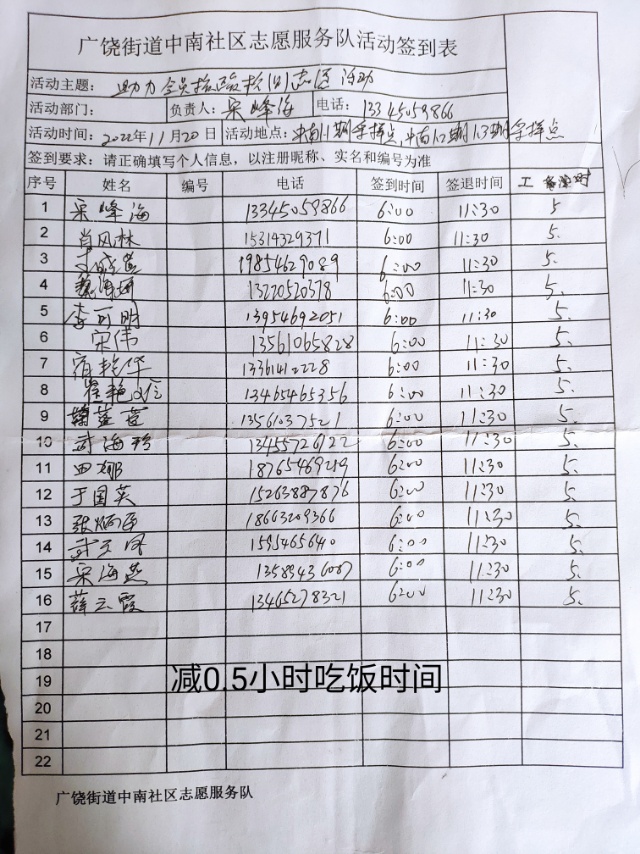 广饶街道中南社区志愿服务队活动签到表
活动主题: 助力全员核酸检测志愿活动
活动部门: 负责人: 宋峰海 电话: 13345059866
活动时间: 2022年11月20日 活动地点: 中南11期采样点, 中南12期13期采样点
签到要求: 请正确填写个人信息, 以注册昵称、实名和编号为准
序号 姓名 编号 电话 签到时间 签退时间 工
1 宋峰海 13345059866 6:00 11:30 5.
2 肖风林 15314329371 6:00 11:30 5.
3 19854629089 6:00 11:30 5.
4 13220520378 6:00 11:30 5.
5 李可明 13954692051 6:00 11:30 5.
6 宋伟 13561065828 6:00 11:30 5.
7 宿艳华 13361410228 6:00 11:30 5.
8 崔艳 13465465356 6:00 11:30 5.
9 13561037521 6:00 11:30 5.
10 武海珍 13455726122 6:00 11:30 5.
11 田娜 18765469219 6:00 11:30 5.
12 于国英 15263887876 6:00 11:30 5.
13 18663209366 6:00 11:30 5.
14 6:00 11:30 5.
15 宋海燕 13589436087 6:00 11:30 5.
16 薛云霞 13465278321 6:00 11:30 5.
17
18
19 减0.5小时吃饭时间
20
21
22
广饶街道中南社区志愿服务队